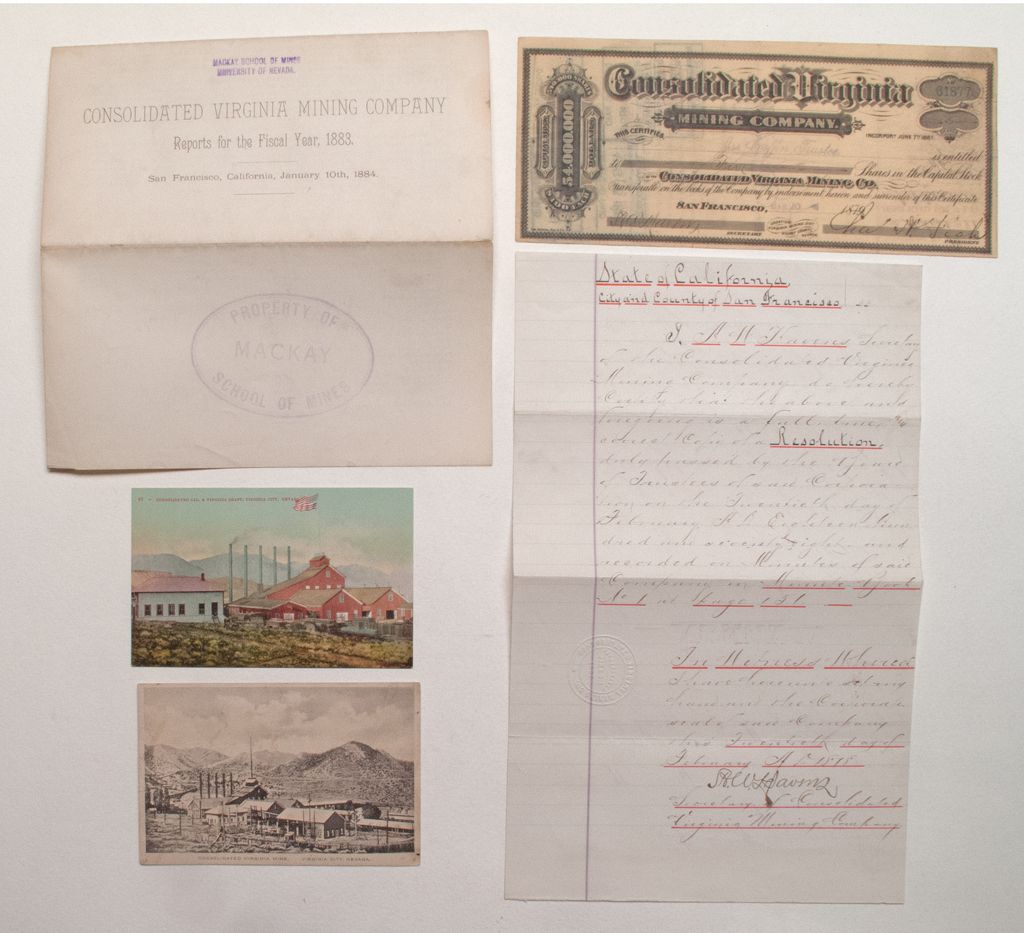 MACKAY SCHOOL OF MINES
UNIVERSITY OF NEVADA.
CONSOLIDATED VIRGINIA MINING COMPANY
Reports for the Fiscal Year, 1883.
San Francisco, California, January 10th, 1884.
PROPERTY OF
MACKAY
SCHOOL OF MINES
Consolidated Virginia
MINING COMPANY.
61877
INCORPORT JUNE 7TH 1867
THIS CERTIFIES
CAPITAL STOCK
$54,000,000
DOLLARS
is entitled
to
Shares in the Capital Stock
of the CONSOLIDATED VIRGINIA MINING CO.
Transferable on the books of the Company by indorsement hereon and surrender of this Certificate
SAN FRANCISCO,
187
SECRETARY
PRESIDENT
State of California,
City and County of San Francisco
I, A W Havens Secretary
of the Consolidated Virginia
Mining Company do hereby
Certify that the above and
foregoing is a full, true, and
correct Copy of a Resolution,
duly passed by the Board
of Trustees of said Corpora-
tion on the Twentieth day of
February A.D. Eighteen Hun-
dred and seventy eight and
recorded on Minutes of said
Company in Minute Book
No 1 at page 131
In Witness Whereof
I have hereunto set my
hand and the Corporate
seal of said Company
this Twentieth day of
February A.D. 1878
A.W. Havens
Secretary of Consolidated
Virginia Mining Company
CONSOLIDATED CAL. & VIRGINIA SHAFT, VIRGINIA CITY, NEVADA
CONSOLIDATED VIRGINIA MINE, VIRGINIA CITY, NEVADA.